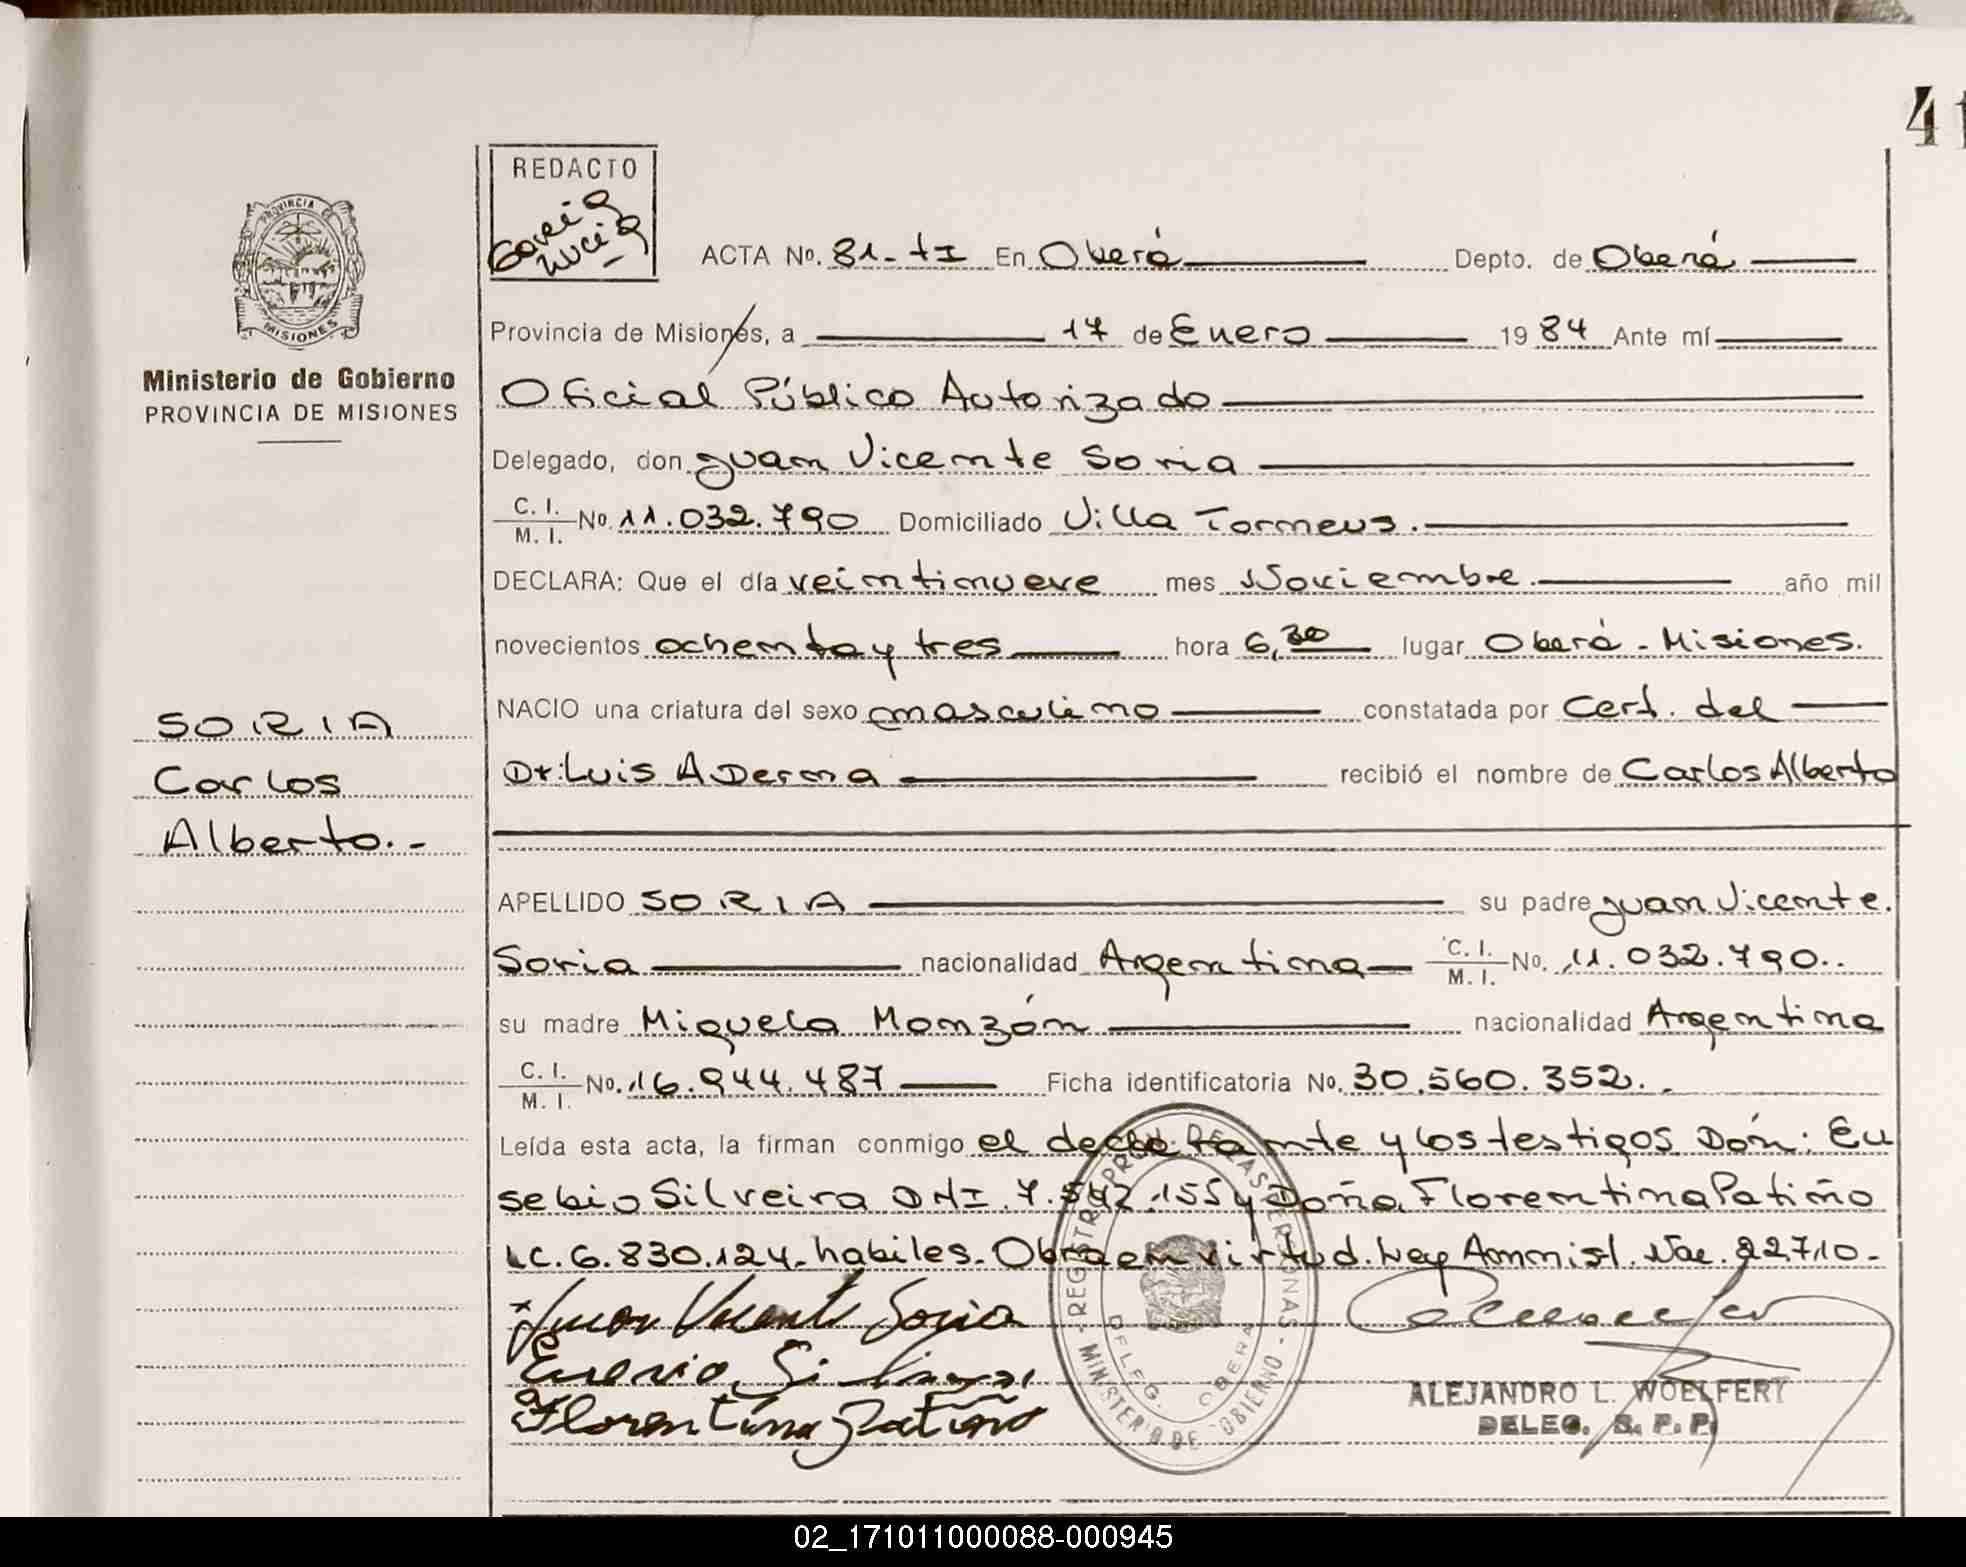 41
REDACTO
García
Lucía
PROVINCIA DE
MISIONES
Ministerio de Gobierno
PROVINCIA DE MISIONES
ACTA No. 81-tI En Oberá Depto. de Oberá
Provincia de Misiones, a 17 de Enero 1984 Ante mí
Oficial Público Autorizado
Delegado, don Juan Vicente Soria
C. I.
M. I. No. 11.032.790 Domiciliado Villa Tormeus.
DECLARA: Que el día veintinueve mes Noviembre. año mil
novecientos ochenta y tres hora 6,30 lugar Oberá - Misiones.
NACIO una criatura del sexo masculino constatada por Cert. del
Dr: Luis A Derna recibió el nombre de Carlos Alberto
SORIA
Carlos
Alberto.-
APELLIDO SORIA su padre Juan Vicente.
Soria nacionalidad Argentina C. I.
M. I. No. 11.032.790..
su madre Miguela Monzón nacionalidad Argentina
C. I.
M. I. No. 16.944.487 Ficha identificatoria No. 30.560.352..
Leída esta acta, la firman conmigo el declarante y los testigos Dón: Eu
sebio Silveira DNI. 7.542.155 y Doña Florentina Patiño
LC. 6.830.124. habiles. Obra en virtud. Ley Amnist. Nac. 22.710-
x Juan Vicente Soria
Florentina Patiño
REGISTRO PROV. DE LAS PERSONAS - MINISTERIO DE GOBIERNO -
DELEG. OBERA
ALEJANDRO L. WOELFERT
DELEG. R. P. P.
02_171011000088-000945